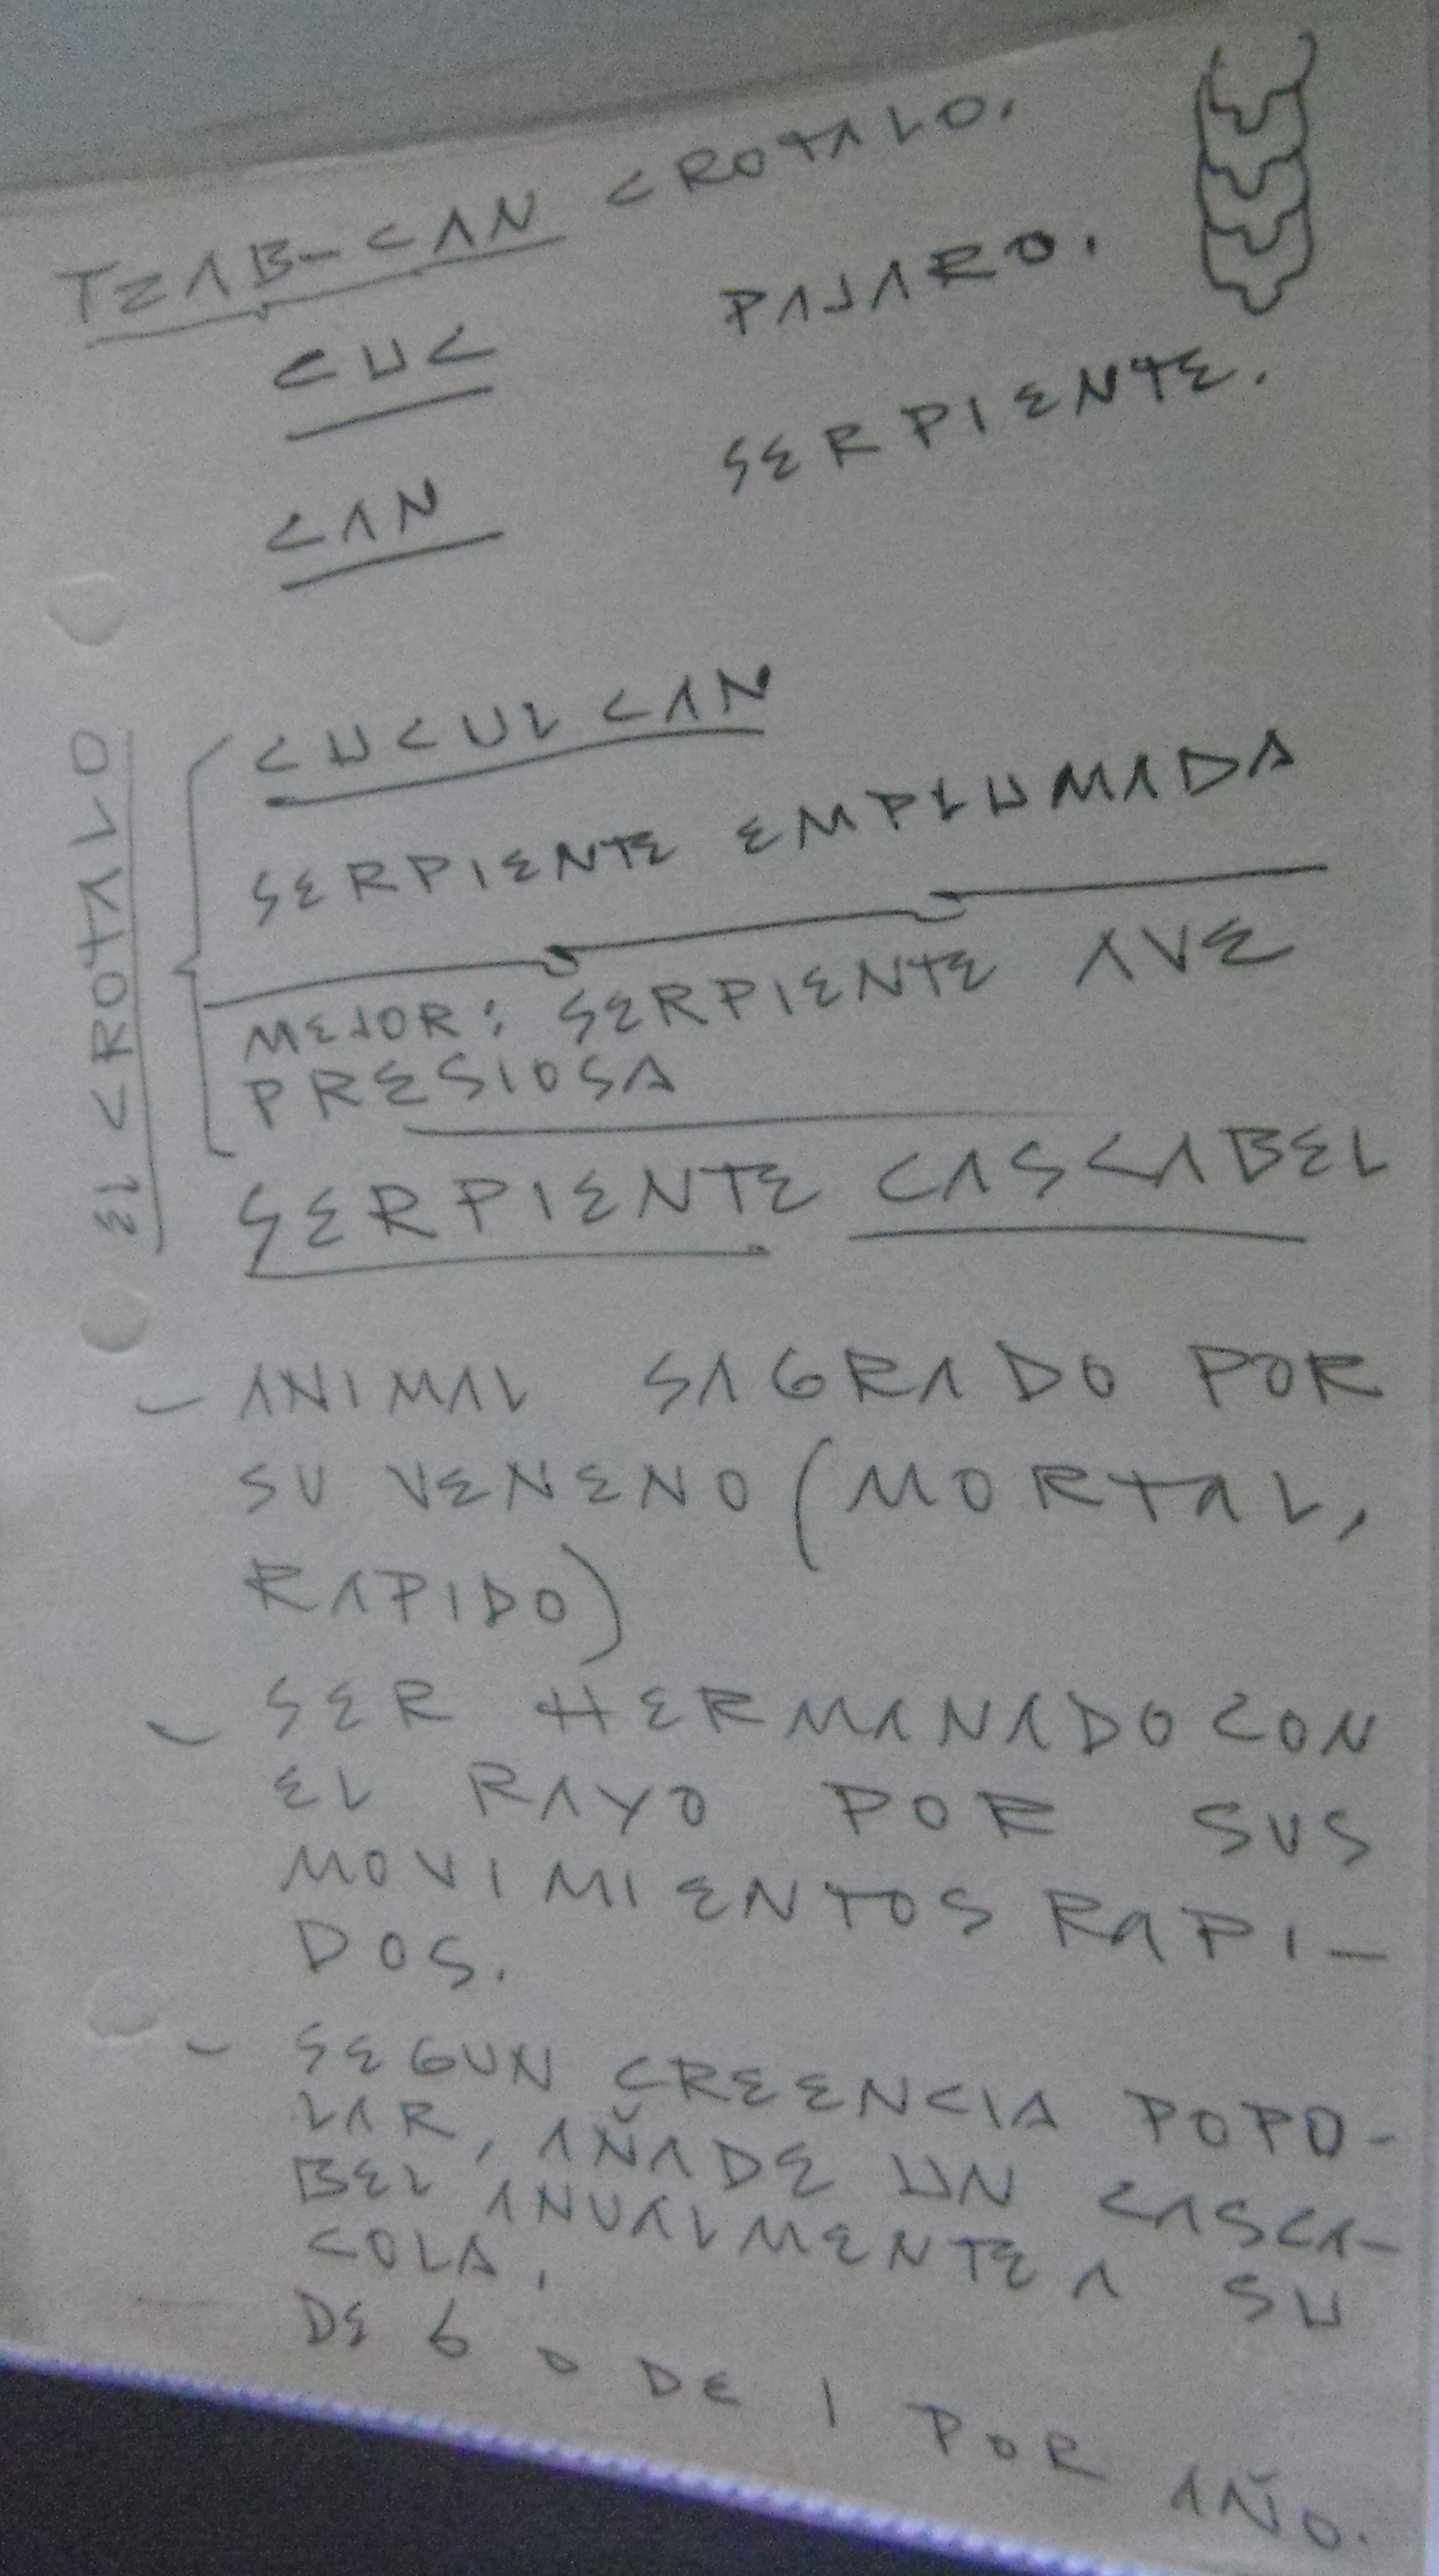 TZAB-CAN CROTALO.
CUC PAJARO.
CAN SERPIENTE.
EL CROTALO
CUCULCAN
SERPIENTE EMPLUMADA
MEJOR: SERPIENTE AVE
PRESIOSA
SERPIENTE CASCABEL
- ANIMAL SAGRADO POR
SU VENENO (MORTAL,
RAPIDO)
- SER HERMANADO CON
EL RAYO POR SUS
MOVIMIENTOS RAPI-
DOS.
- SEGUN CREENCIA POPO-
LAR, AÑADE UN CASCA-
BEL ANUALMENTE A SU
COLA,
DE 6 O DE 1 POR AÑO.